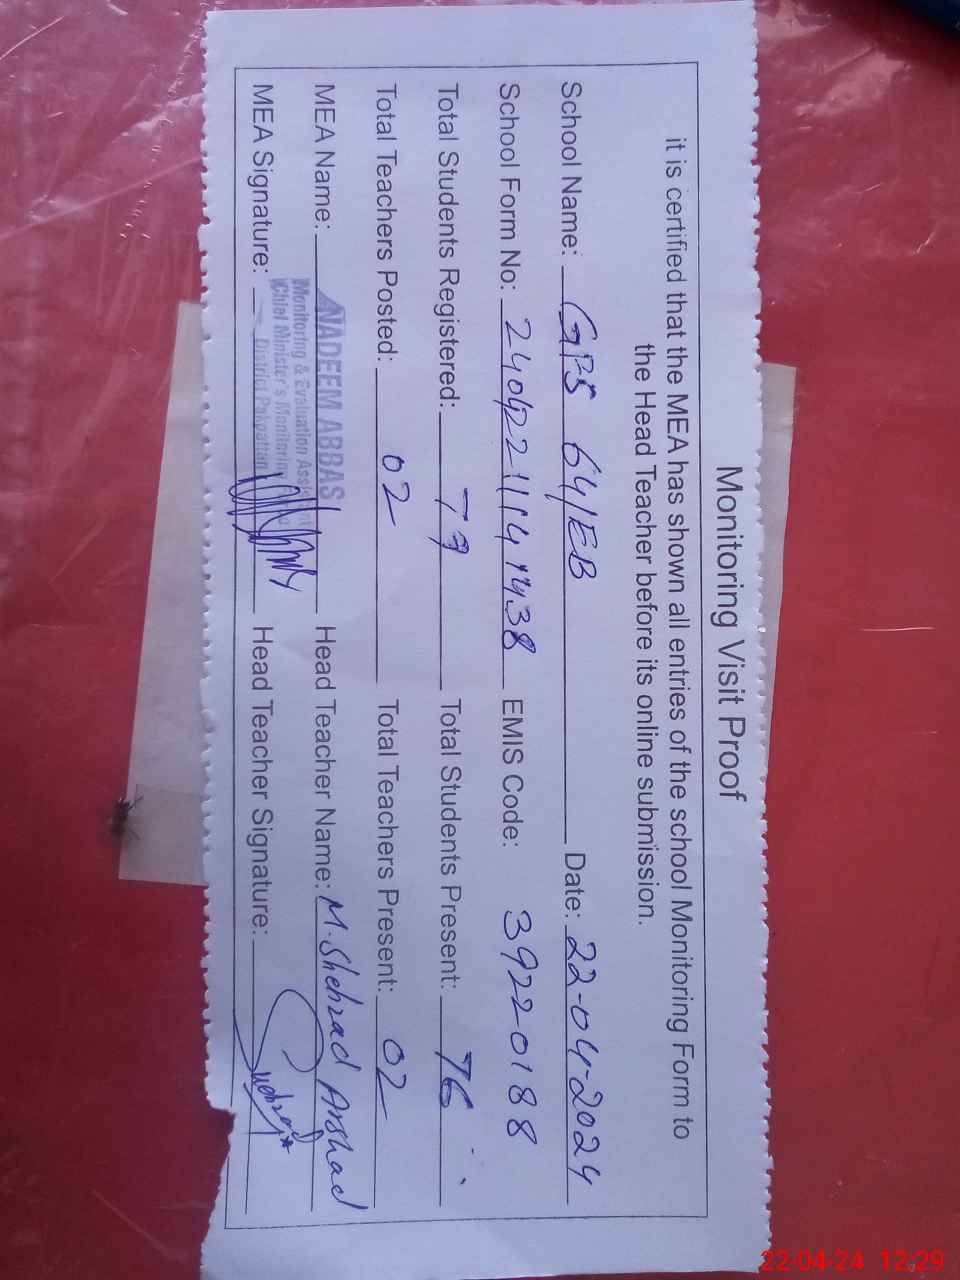 Monitoring Visit Proof
it is certified that the MEA has shown all entries of the school Monitoring Form to
the Head Teacher before its online submission.
School Name: GPS 64/EB Date: 22-04-2024
School Form No: EMIS Code: 39220188
Total Students Registered: 79 Total Students Present: 76
Total Teachers Posted: 02 Total Teachers Present: 02
MEA Name: NADEEM ABBAS Head Teacher Name: M. Shehzad Arshad
Monitoring & Evaluation
Chief Minister's Monitoring
MEA Signature: District Pakpattan Head Teacher Signature:
22-04-24 12:29